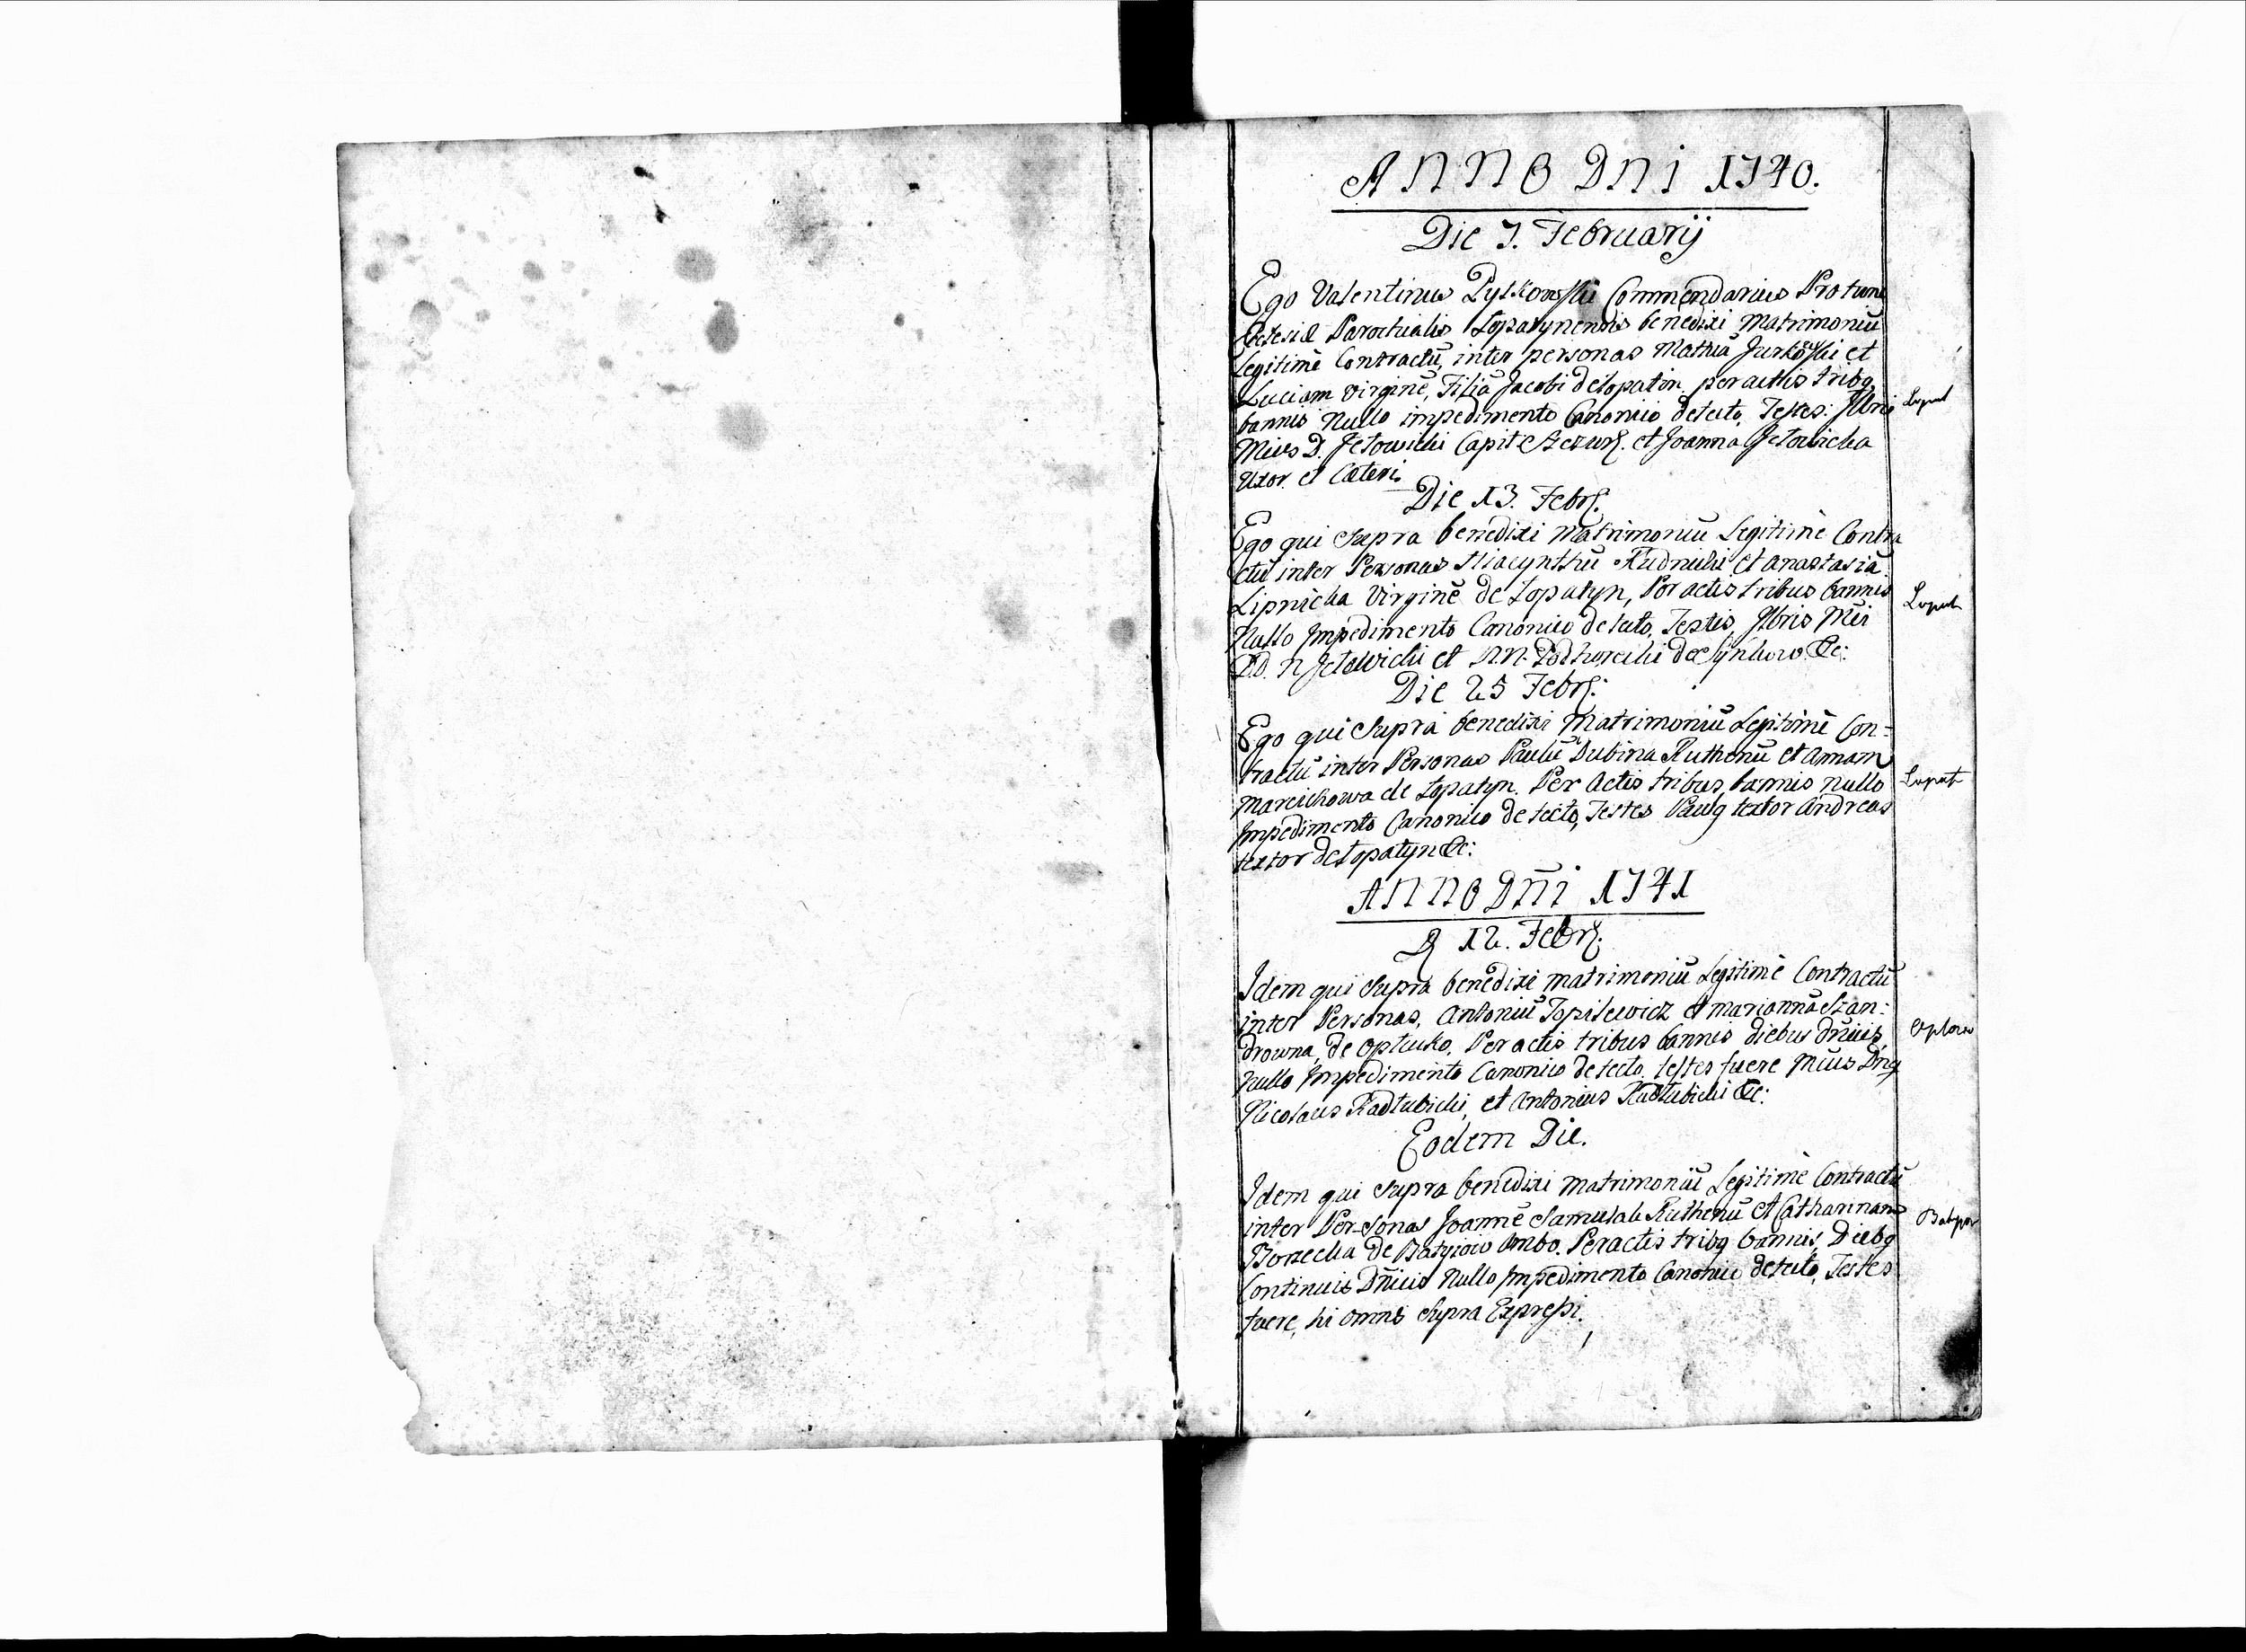 ANNO DNI 1740.
Die 7. Februarij
Ego Valentinus Pyszkowski Commendarius Pro tunc
Ecclesiæ Parochialis Lopatynensis benedixi Matrimoniũ
Legitimè Contractũ, inter personas Mathiã Jurkowski et
Luciam virginẽ, Filiã Jacobi de Lopatin peractis tribq
bannis Nullo impedimento Canonico detecto, Testes: Illris
Lopat
Mũs D. Jełowicki Capit et Joanna Jełowicka
Uxor et Cæteri.
Die 13. Febr.
Ego qui Supra benedixi Matrimoniũ Legitimè Contra
ctũ inter Personas Hiacynthũ Rudnicki et Anastasiã
Lipnicka Virginẽ de Lopatyn, Per actis tribus bannis
Lopat
Nullo Impedimento Canonico detecto, Testis, Illris Mũi
DD. N Jełowicki et N.N. Podhorecki de &c:
Die 25 Febr:
Ego qui Supra benedixi Matrimoniũ Legitimè Con=
tractũ inter Personas Paulũ Dubina Ruthenũ et Annam
Marcichowa de Lopatyn. Per Actis tribus bannis nullo
Lopat
Impedimento Canonico detecto, Testes Paulq textor Andreas
textor de Lopatyn &c:
ANNO DÑI 1741
D 12. Febr.
Idem qui Supra benedixi matrimoniũ Legitimè Contractũ
inter Personas, Antoniũ Topilewicz et mariannã Szan:
drowna, de Opłucko. Per actis tribus bannis diebus Dñicis,
Opłow
Nullo Impedimento Canonico detecto, testes fuere Mũs Dñq
Nicolaus Radłubicki, et Antonius Radłubicki &c:
Eodem Die.
Idem qui Supra benedixi Matrimoniũ Legitimè Contractũ
inter Per-sonas Joannẽ Samulak Ruthenũ et Catharinam
Borecka de Batyiow Ambo. Peractis tribq bannis, Diebq
Continuis Dñicis Nullo Impedimento Canonico detecto, Testes
fuere, hi omnes Supra Expressi.